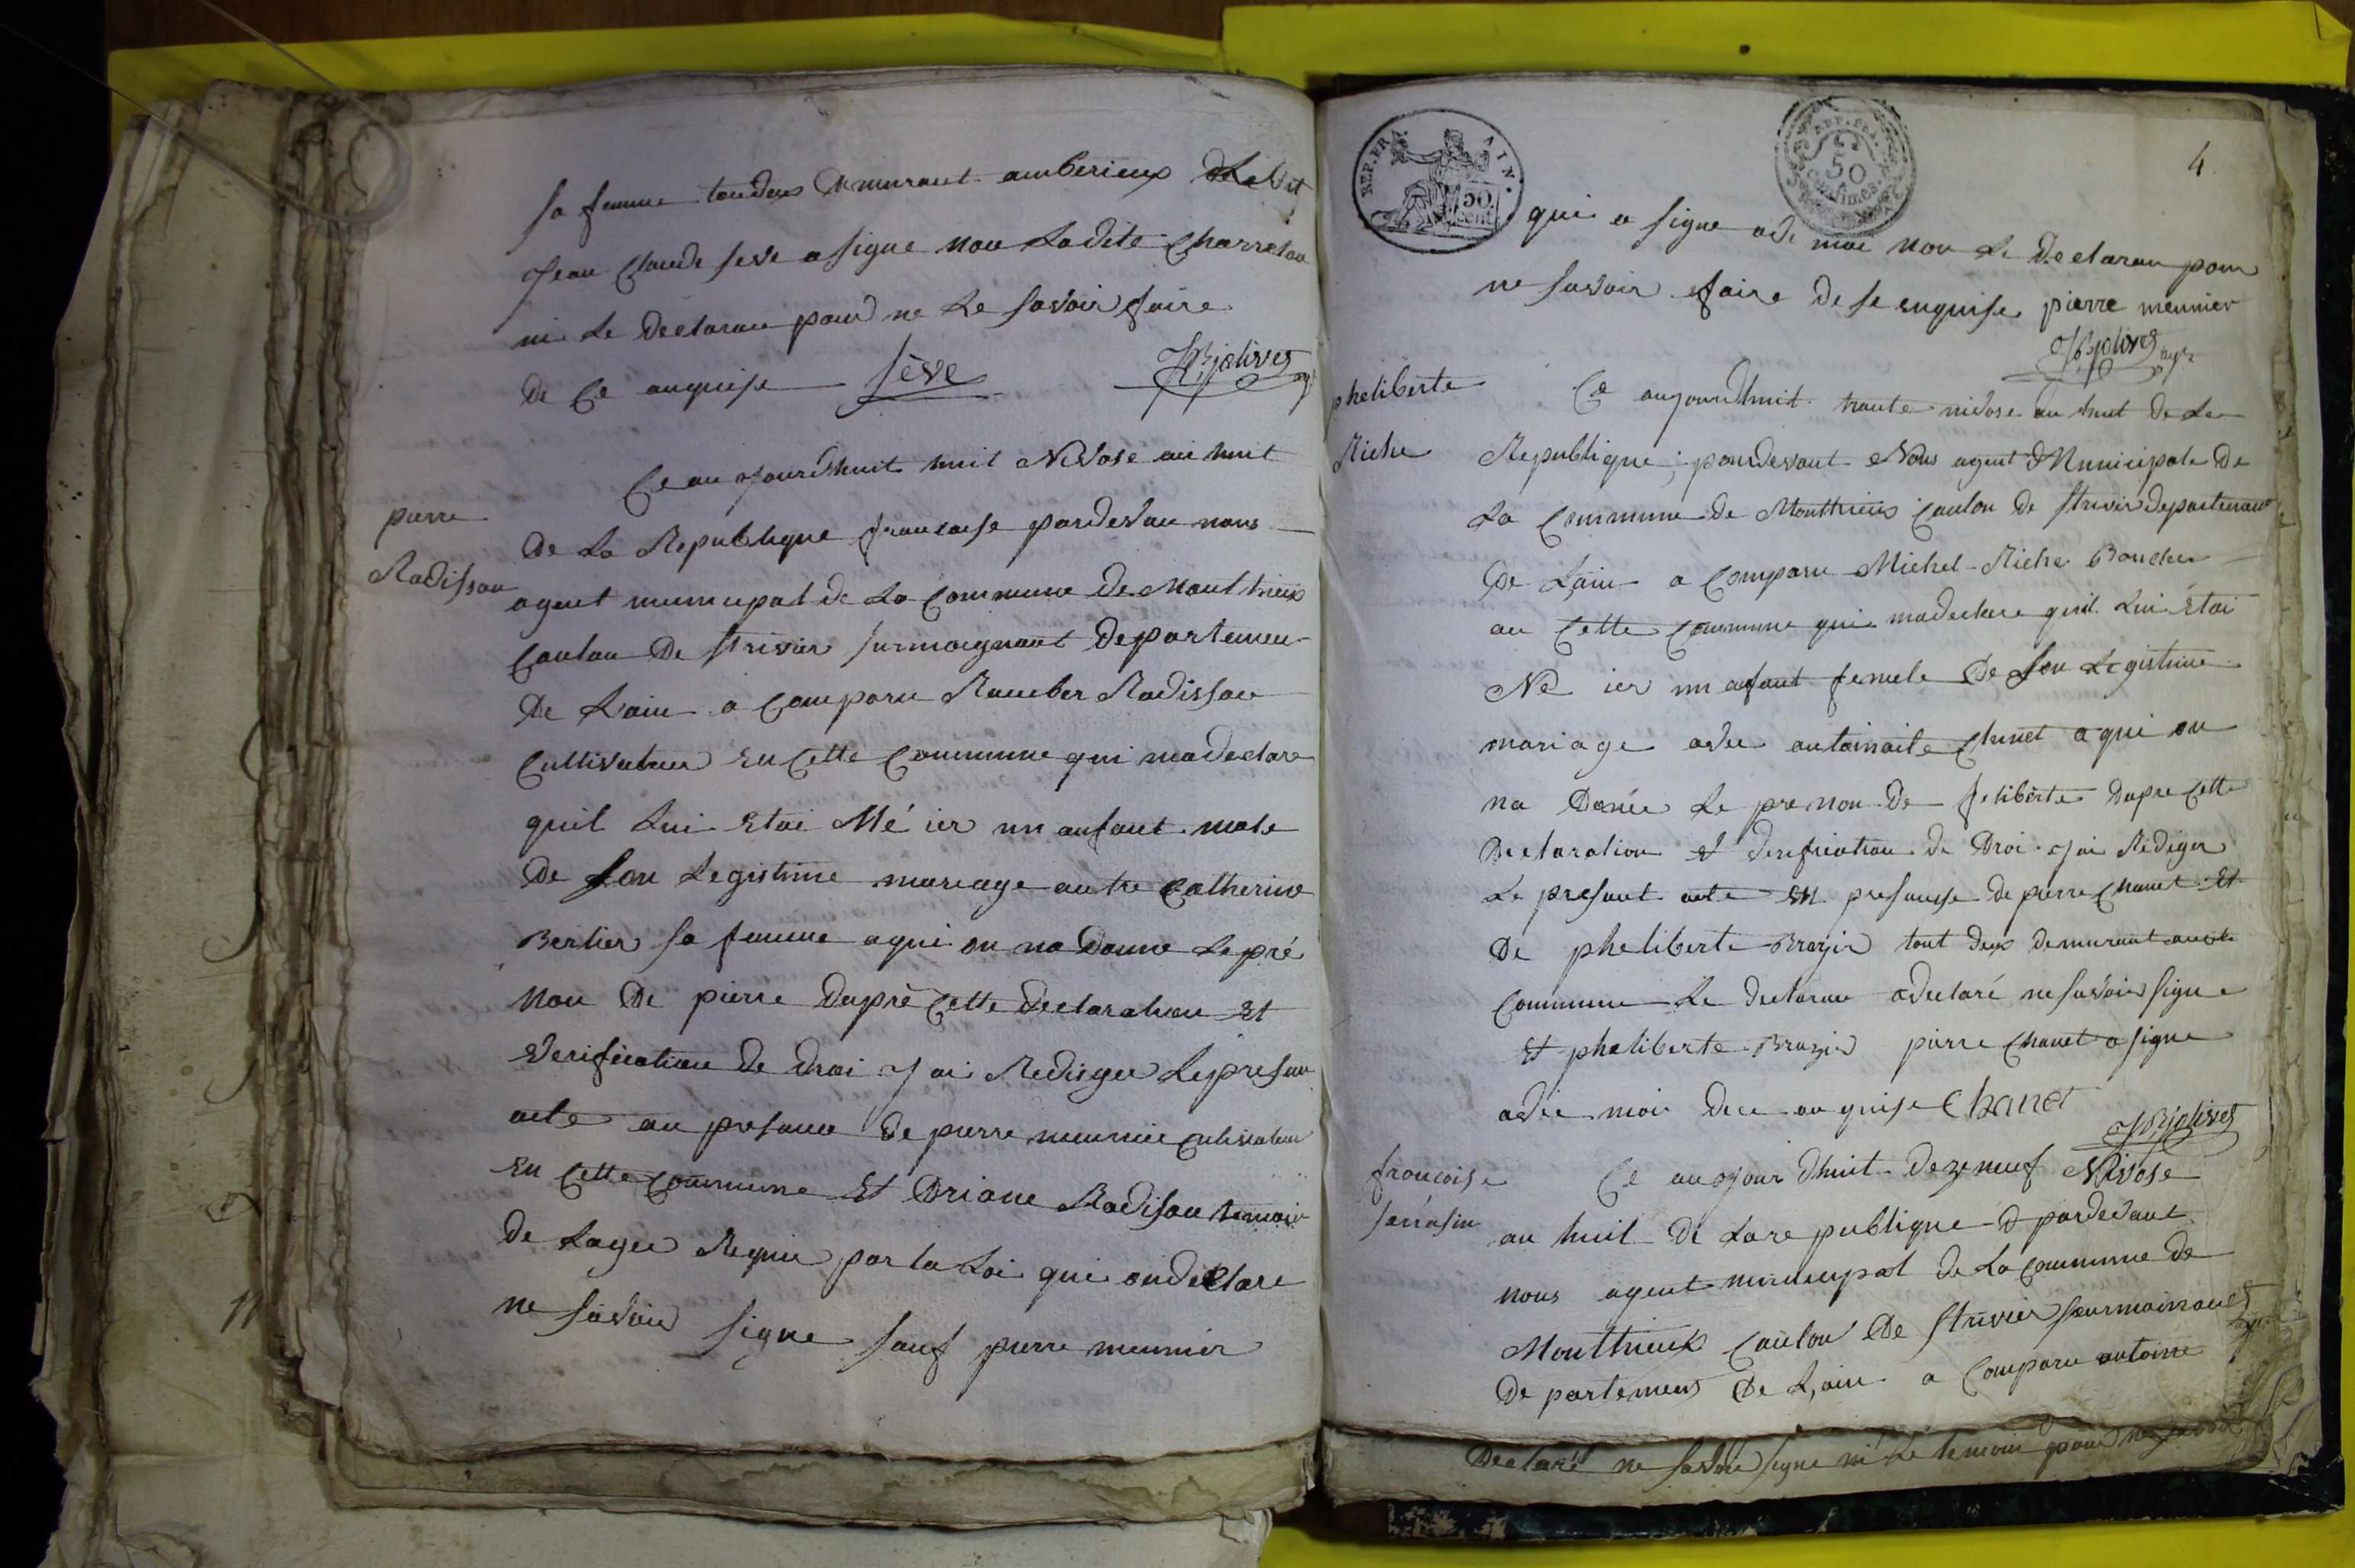 sa femme toudeux demurant amberieux Ledit
Jean Claude seve a signe non Ladite Charreton
ni Le declaran pour ne Le savoir faire
de Ce anquise Sève JBjolivet agt
Ce au jourdhuit huit Nivose an huit
pierre
de La Republique francaise pardevan nous
Radisson
agent municipal de La Commune de Monthieux
Canton de strivier surmoignant departemen
de L'ain a Comparu Rember Radisson
Cultivateur en Cette Commune qui madeclare
quil Lui etoi Né ier un anfant male
de son Legistime mariage antre Catherine
Bertier sa femme aqui on na donne Lepré
nom de pierre daprè Cette declaration et
verification de droi Jai Redigee Lepresan
acte an presance de pierre meunier Cultivateur
en Cette Commune et Driane Radison temoin
de Lagee Requie par la Loi qui ondeclare
ne savoir signe sauf pierre meunier
REP. FRA. AIN. 50. cent.
REP. FRA. 50 centimes
4
qui a signe ave moi non Le Declaran pour
ne savoir faire de se enquise pierre meunier
JBjolivet agt
pheliberte
Ce aujourdhuit trante nivose an huit de La
Riche
Republique; pardevant Nous agent Municipale de
La Commune de Montthieux Canton de strivier departemant
de Lain a Comparu Michel Riche
an Cette Commune qui madeclare quil Lui etoi
Né ier un anfant femele de son Legistime
mariage avec antoinaite Chanet a qui on
na donée Le prenon de feliberte dapre Cette
declaration et verification de droi Jai Rédiger
Le presant acte en presansse de pierre Chanet et
de pheliberte Brazir tout deux demurant
Commune Le declaran adeclaré nesavoir signe
et pheliberte Brazir pierre Chanet a signe
avec moi dece anquise Chanet
JBjolivet agt
francoise
Ce aujour dhuit dezeneuf Nivose
sarrasin
an huit de Lare publique pardevant
nous agent municipal de La Commune de
Montthieux Canton de strivier surmoinant
departement de L,ain a Comparu antoine
Declaré ne savoir signe ni Le temoin pour ne savoir